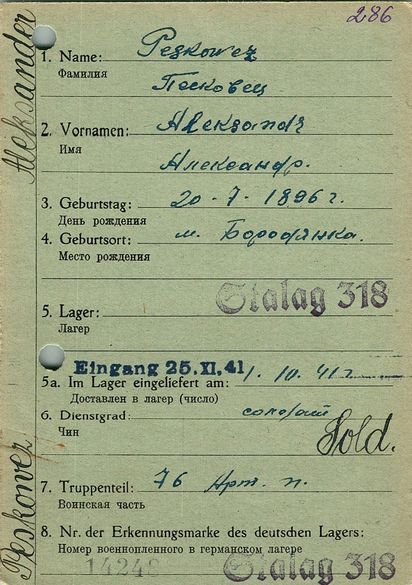 286
Aleksander
1. Name: Peskowez
Фамилия
Песковец
2. Vornamen: Aleksandr
Имя
Александр.
3. Geburtstag: 20 - 7 - 1896 г.
День рождения
4. Geburtsort: м. Бородянка.
Место рождения
Stalag 318
5. Lager:
Лагер
Eingang 25. XI. 41
5a. Im Lager eingeliefert am: 1. 10. 41 г
Доставлен в лагер (число)
6. Dienstgrad: солдат
Чин
Sold.
Peskowez
7. Truppenteil: 76 Арт. п.
Воинская часть
8. Nr. der Erkennungsmarke des deutschen Lagers:
Номер военнопленного в германском лагере
14248 Stalag 318